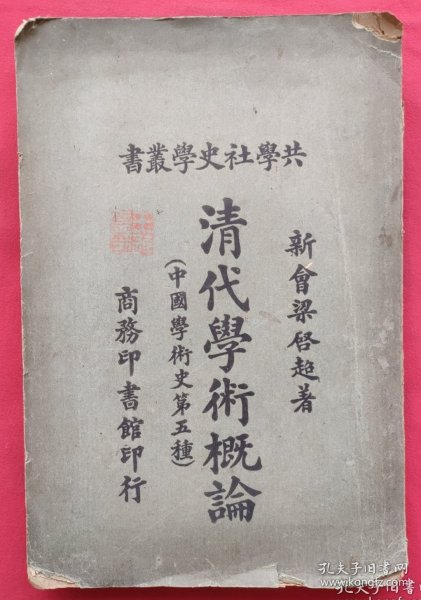 共學社史學叢書
新會梁啓超著
清代學術概論
(中國學術史第五種)
商務印書館印行
孔夫子旧书网
www.kongfz.com
孔夫子旧书